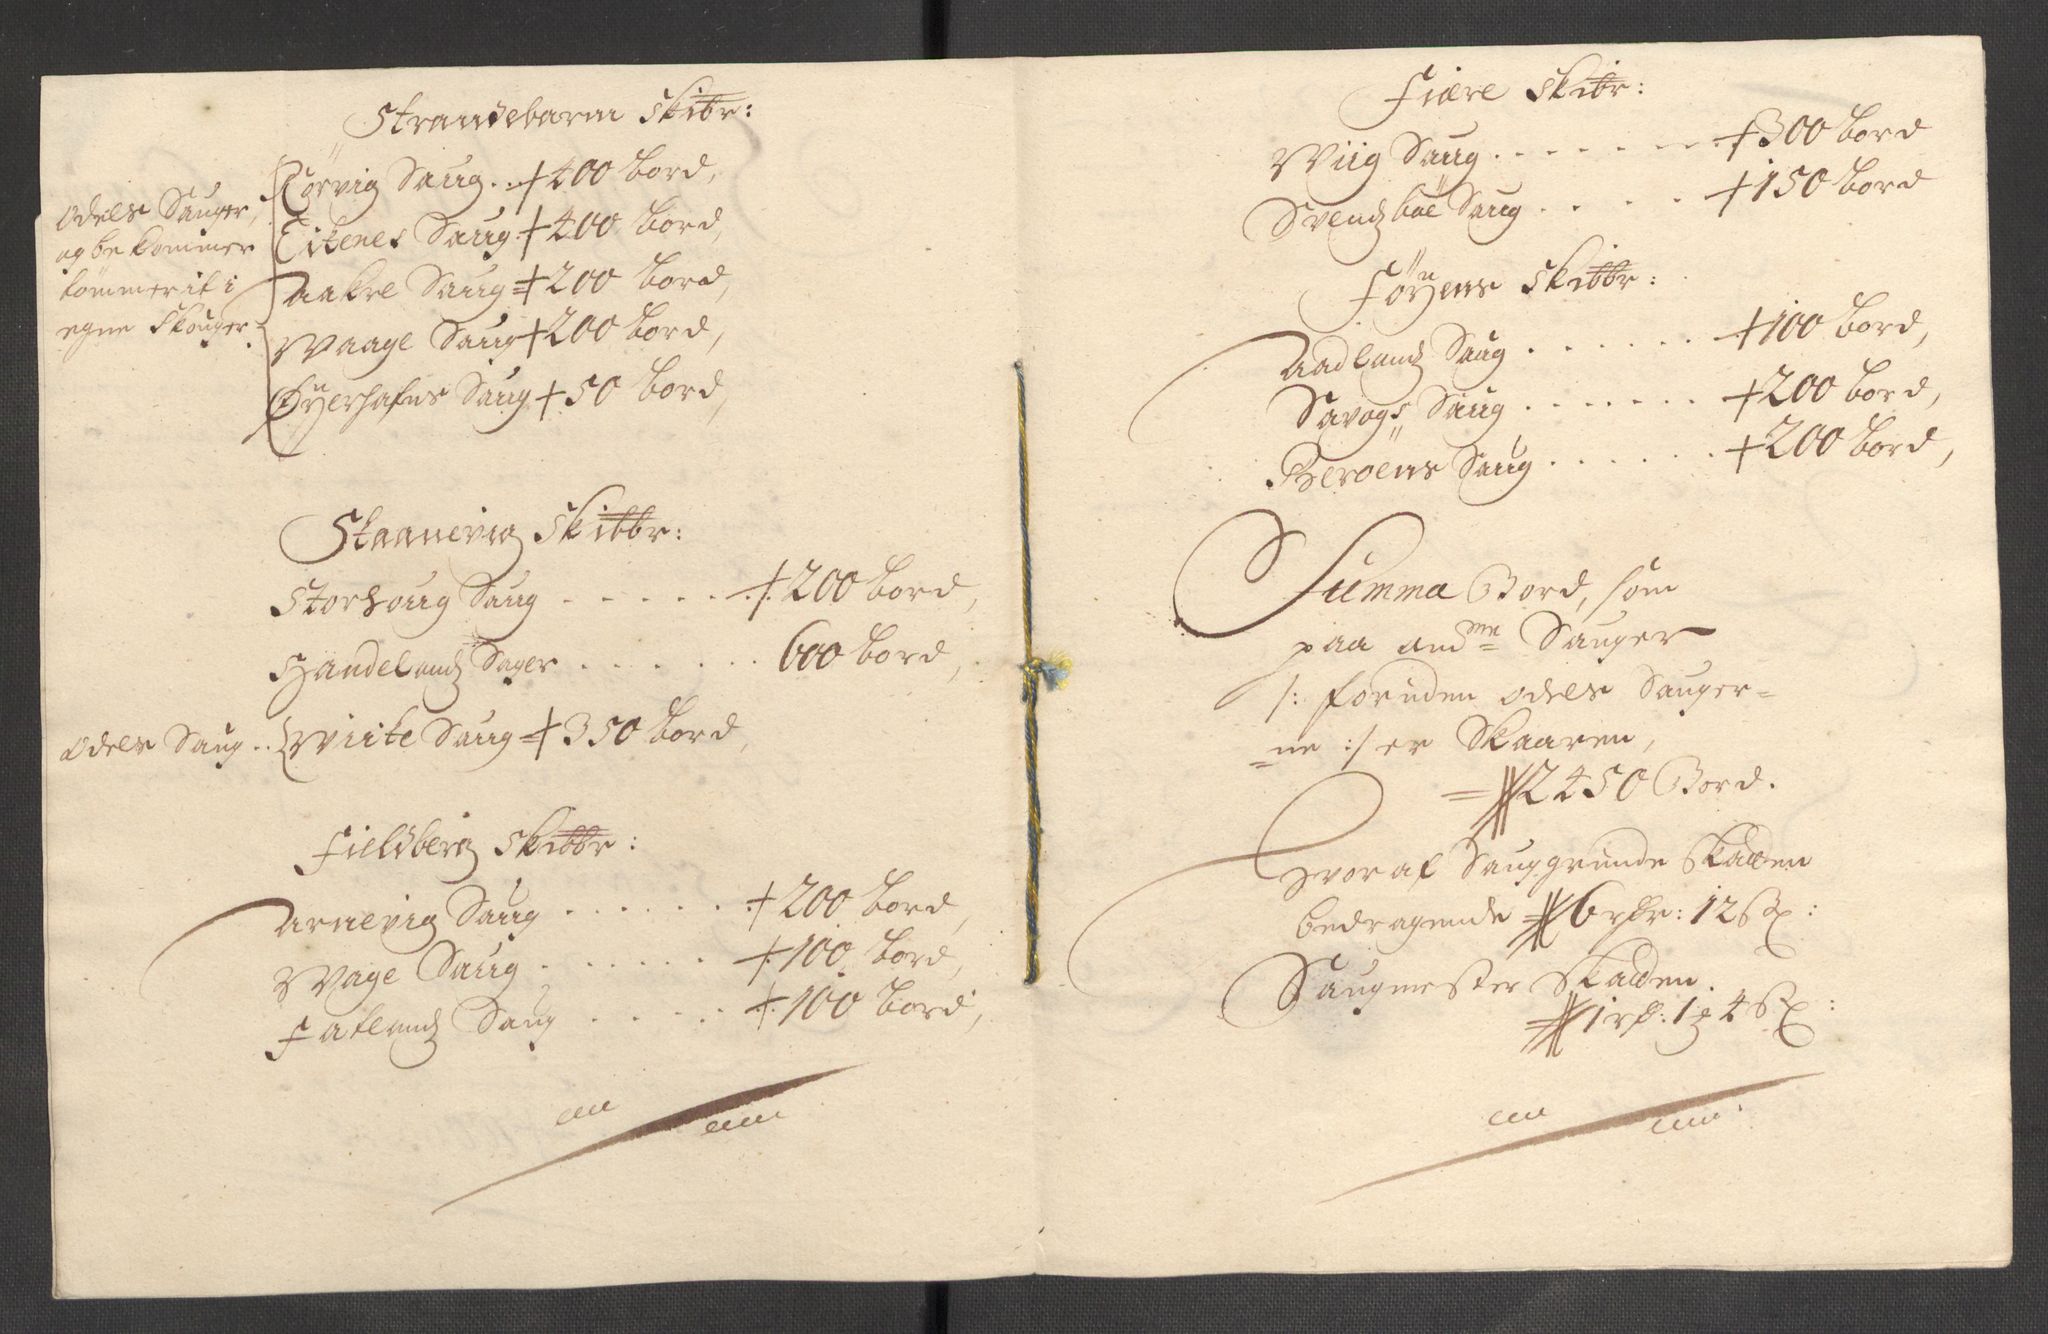 Strandebarm Skibr:
Odels Sauger,
og bekommer
tømmerit i
egne Skouger.
Rørvig Saug .. 400 bord,
Eikenes Saug 400 bord,
Aakre Saug = 200 bord,
Waage Saug 200 bord,
Øyerhafns Saug 50 bord,
Skaanevig Skibbr:
Storhoug Saug . . . . . . 200 bord,
Handelands Sager . . . . . . 600 bord,
Odels Saug .. Wiike Saug = 350 bord,
Fieldberg Skibbr:
Arnevig Saug . . . . . . 200 bord,
Wage Saug . . . . . . 100 bord,
Fatlands Saug . . . . . 100 bord,
Fiære Skibr:
Wiig Saug . . . . . . . 300 bord
Svendsbøe Saug . . . . . 150 bord
Føyens Skibbr:
Aadlands Saug . . . . . . 100 bord,
Savogs Saug . . . . . . . 200 bord,
Beroens Saug . . . . . . 200 bord,
Summa Bord, som
paa Sauger
/: foruden Odels Sauger=
=ne :/ er Skaaren,
= 2450 Bord.
Hvoraf Sauggrunde Skatten
bedragende 6 rdr: 12 S:
Saugmester Skatten.
1 rd: 1 4 S: